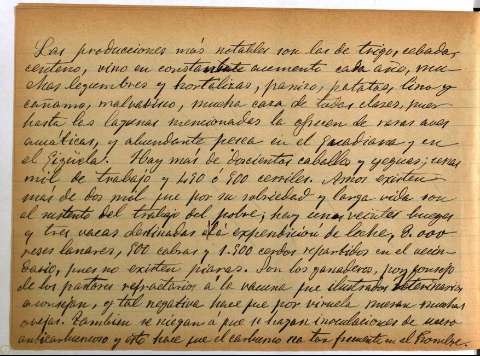 Las producciones más notables son las de trigo, cebada,
centeno, vino en constante aumento cada año, mu-
chas legumbres y hortalizas, panizo, patatas, lino y
cañamo, malvabisco, mucha caza de todas clases, pues
hasta las lagunas mencionadas la ofrecen de raras aves
acuáticas, y abundante pesca en el Guadiana y en
el Gigüela. Hay mas de doscientos caballos y yeguas; unas
mil de trabajo y 450 ó 500 cerriles. Asnos existen
más de dos mil que por su sobriedad y larga vida son
el sustento del trabajo del pobre; hay unos veinte bueyes
y tres vacas destinadas á la expendicion de leche, 8.000
reses lanares, 500 cabras y 1.500 cerdos repartidos en el vecin-
dario, pues no existen piaras. Son los ganaderos, por consejo
de los pastores refractarios a la vacuna que ilustrados veterinarios
aconsejan, y tal negativa hace que por viruela mueran muchas
ovejas. Tambien se niegan á que se hagan inoculaciones de suero
anticarbuncoso y esto hace que el carbunco sea tan frecuente en el hombre.